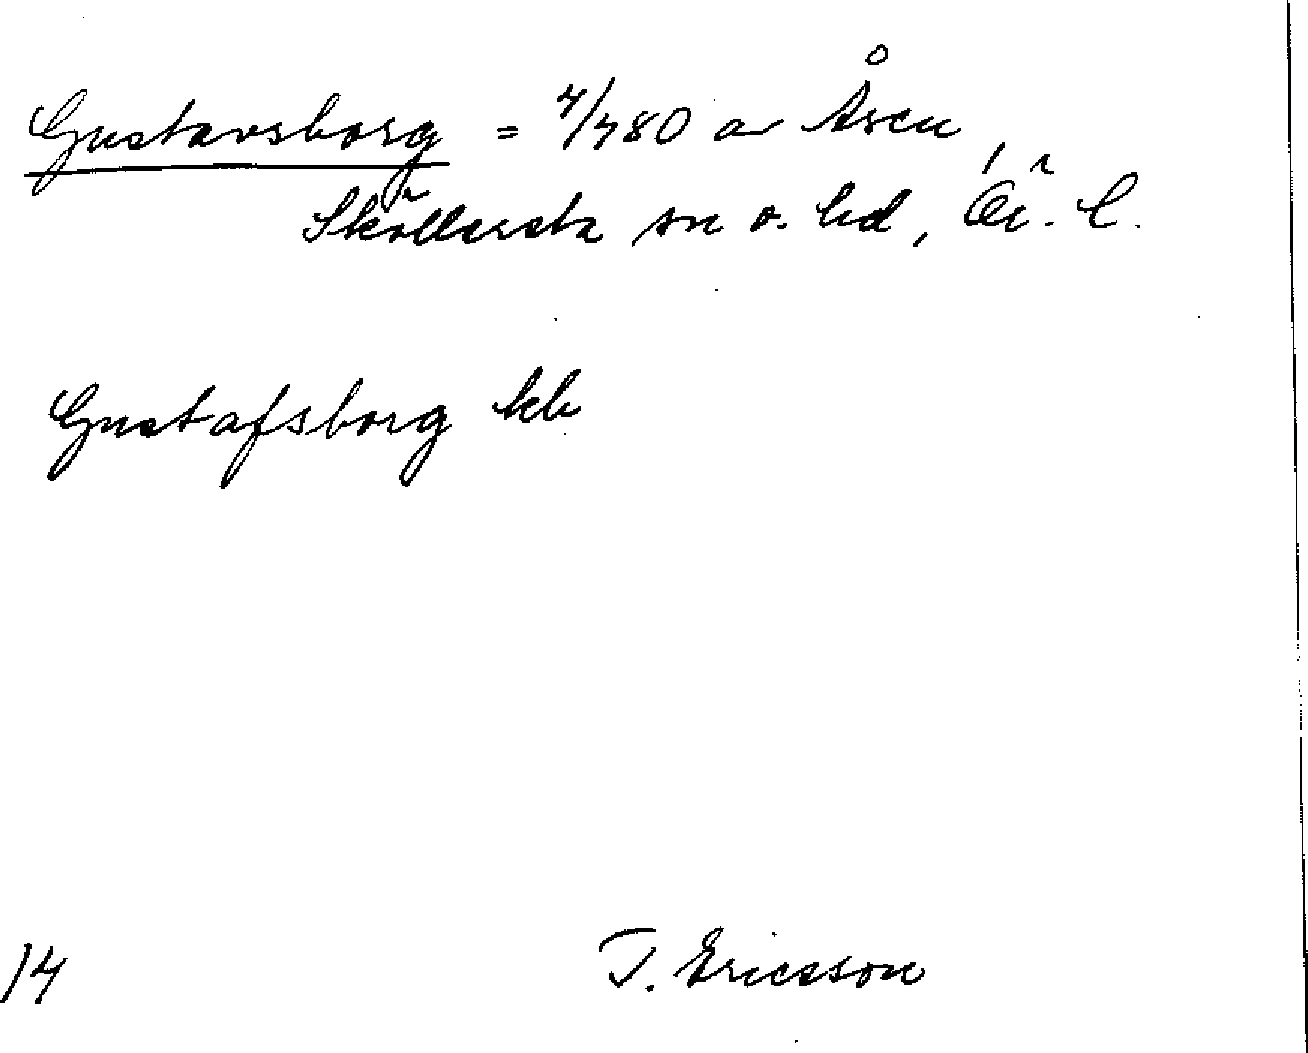 Gustavsborg = 4/480 av Åsen,
Sköllersta sn o. hd, Ör. l.
Gustafsborg kb
14
T. Ericsson